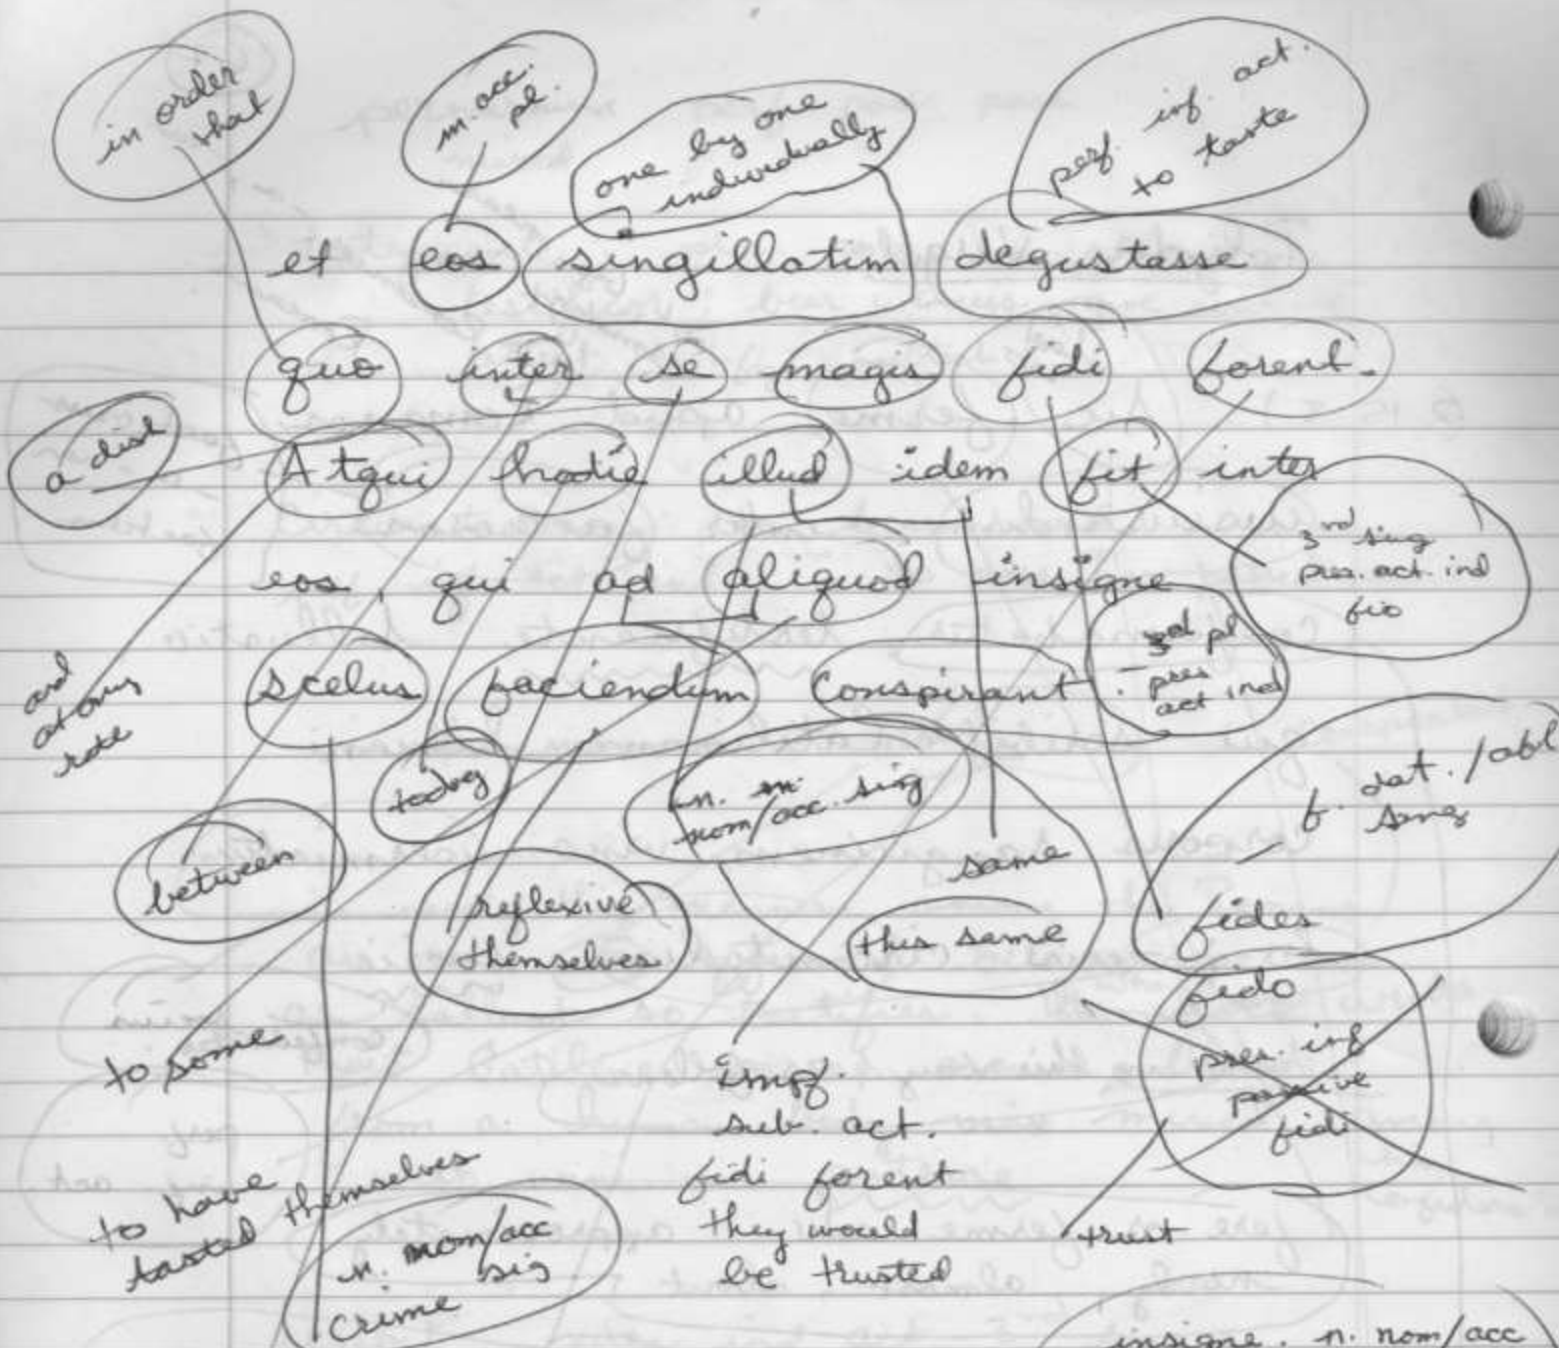 in order
that
m. acc.
pl.
one by one
individually
perf. inf. act.
to taste
et eos singillatim degustasse
quo inter se magis fidi forent.
a dish
Atqui hodie illud idem fit inter
3rd sing
pres. act. ind
fio
eos, qui ad aliquod insigne
and
at any
rate
scelus faciendum conspirant
3rd pl
pres
act ind
today
n.
nom/acc. sing
f. dat. / abl
sing
between
same
reflexive
themselves
this same
fides
fido
pres. inf
passive
fidi
to some
impf.
sub. act.
fidi forent
they would
be trusted
to have
tasted themselves
trust
n. nom/acc
sig
crime
insigne. n. nom/acc